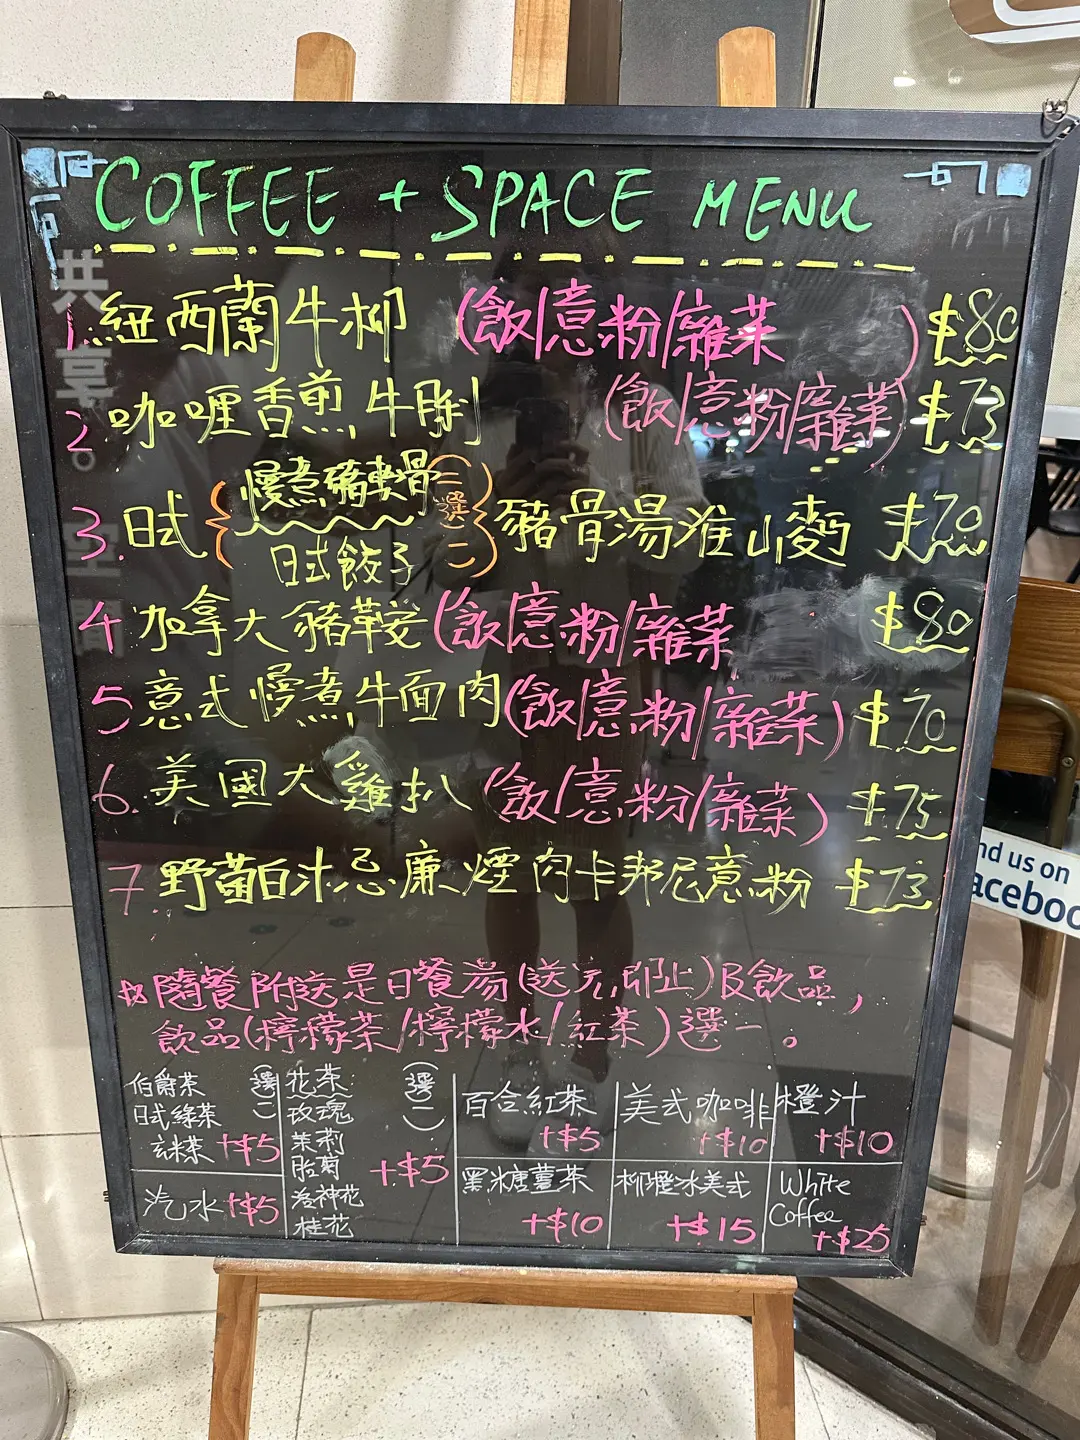 COFFEE + SPACE MENU
共享空間
1. 紐西蘭牛柳 (飯/意粉/雜菜) $80
2。咖喱香煎牛脷 (飯/意粉/雜菜) $73
3. 日式{慢煮豬軟骨 日式餃子 (二選一)}豬骨湯淮山麵 $70
4 加拿大豬鞍 (飯/意粉/雜菜 $80
5 意式慢煮牛面肉 (飯/意粉/雜菜) $70
6. 美國大雞扒 (飯/意粉/雜菜) $75
7. 野菌白汁忌廉煙肉卡邦尼意粉 $73
隨餐附送是日餐湯(送完即止)及飲品,
飲品(檸檬茶/檸檬水/紅茶)選一。
伯爵茶 (選一)
日式綠茶
玄米茶 +$5
汽水 +$5
花茶 (選一)
玫瑰
茉莉
胎菊 +$5
洛神花
桂花
百合紅茶
+$5
黑糖薑茶
+$10
美式咖啡
+$10
柳橙冰美式
+$15
橙汁
+$10
White
Coffee
+$25
nd us on
aceboo